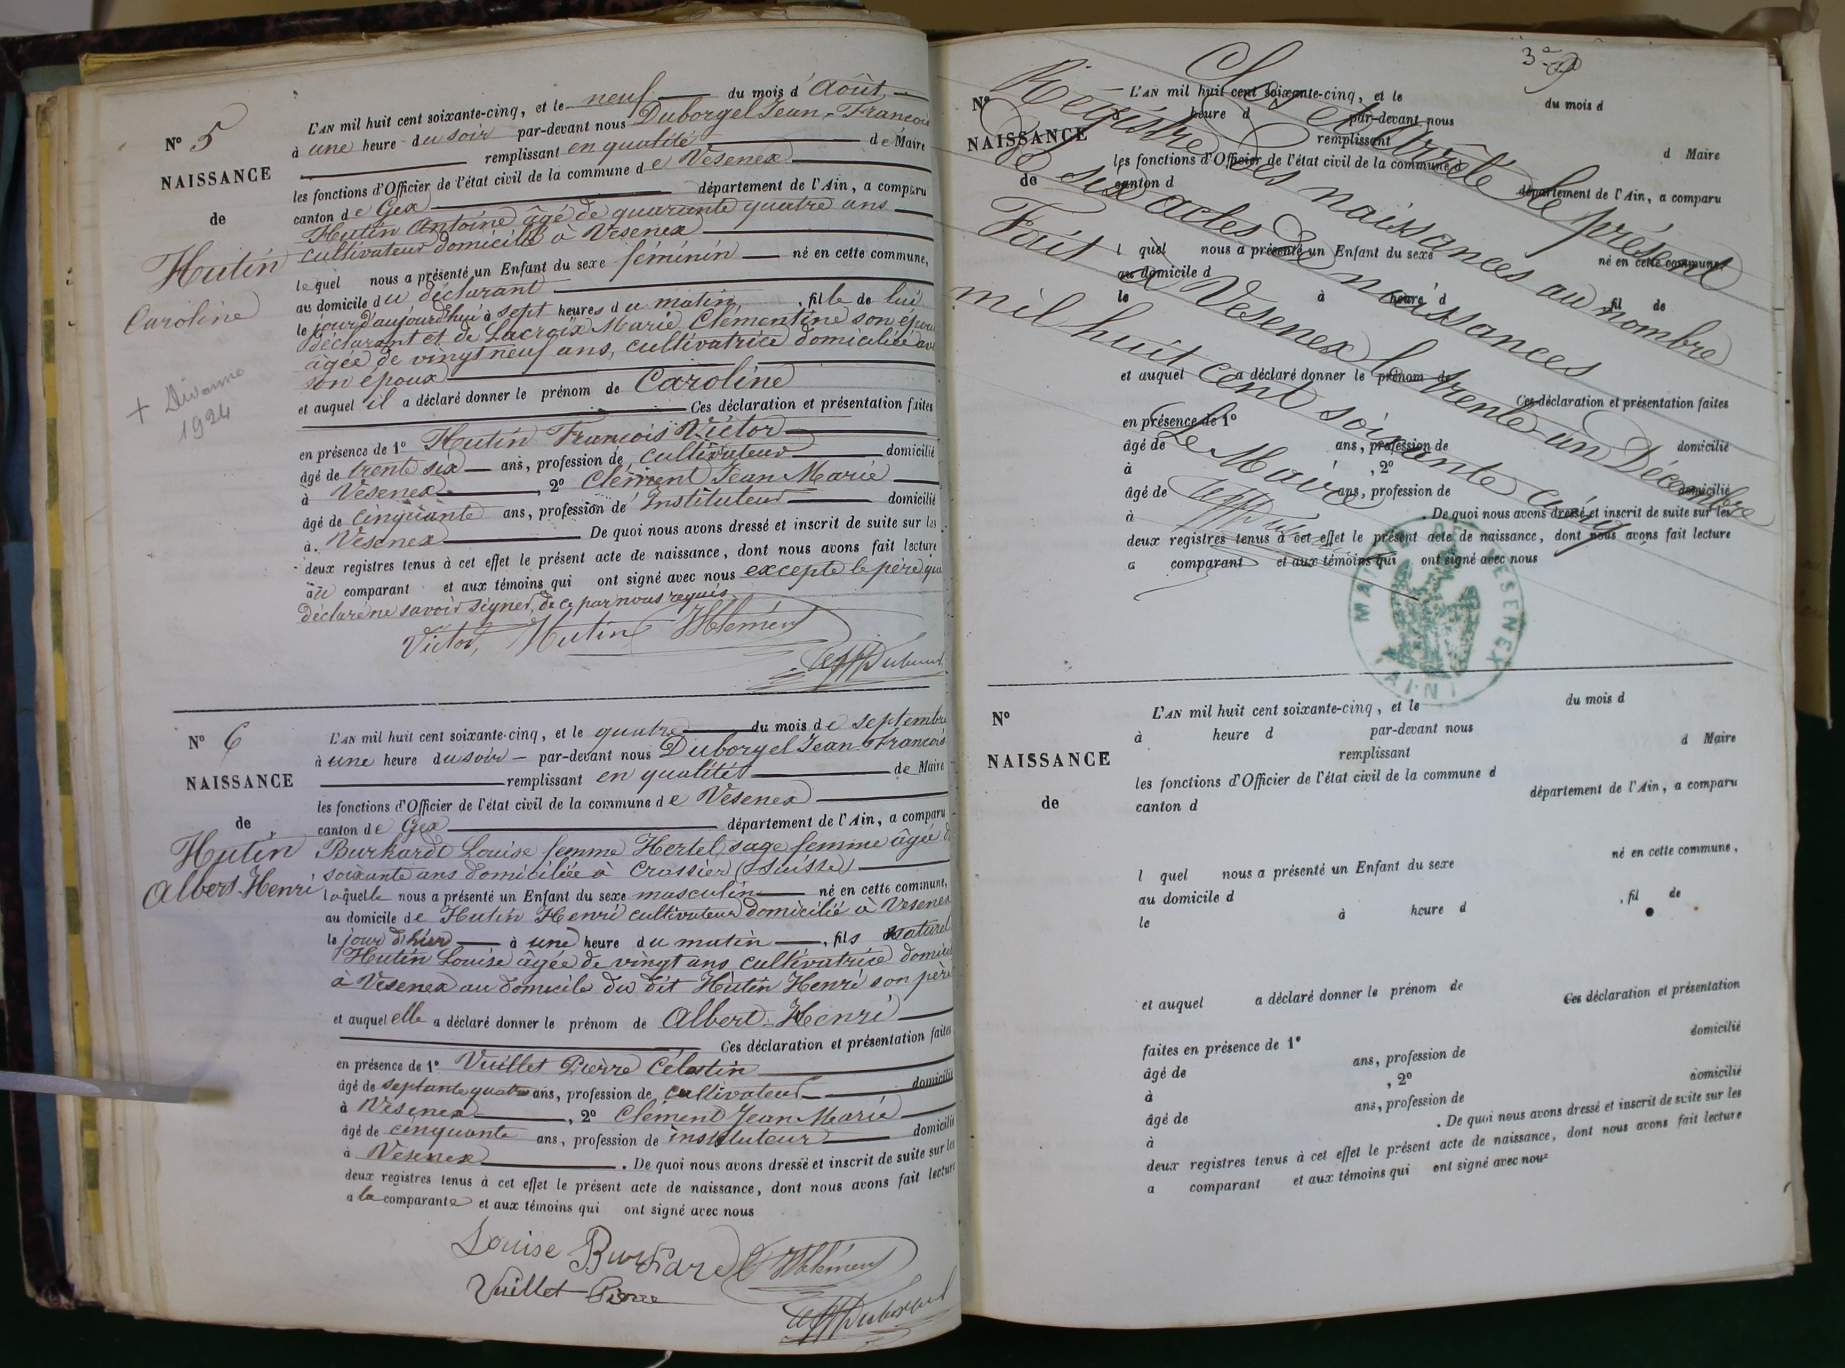 N° 5
NAISSANCE
de
Hutin
Caroline
+ Divonne
1924
L'AN mil huit cent soixante-cinq, et le neuf du mois d'Août
à une heure du soir par-devant nous Duborgel Jean-François
remplissant en qualité de Maire
les fonctions d'Officier de l'état civil de la commune de Vesenex
canton de Gex département de l'Ain, a comparu
Hutin Antoine âgé de quarante quatre ans
cultivateur domicilié à Vesenex
lequel nous a présenté un Enfant du sexe féminin né en cette commune,
au domicile du déclarant
le jour d'aujourd'hui à sept heures du matin, fille de lui
déclarant et de Lacroix Marie Clémentine son épouse
âgée de vingt neuf ans, cultivatrice domiciliée avec
son époux
et auquel il a déclaré donner le prénom de Caroline
Ces déclaration et présentation faites
en présence de 1° Hutin François Victor
âgé de trente six ans, profession de cultivateur domicilié
à Vesenex, 2° Clément Jean Marie
âgé de cinquante ans, profession de Instituteur domicilié
à Vesenex De quoi nous avons dressé et inscrit de suite sur les
deux registres tenus à cet effet le présent acte de naissance, dont nous avons fait lecture
au comparant et aux témoins qui ont signé avec nous excepté le père qui a
déclaré ne savoir signer, de ce par nous requis
Victor Hutin JMClément
Duborgel
N° 6
NAISSANCE
de
Hutin
Albert Henri
L'AN mil huit cent soixante-cinq, et le quatre du mois de septembre
à une heure du soir par-devant nous Duborgel Jean-François
remplissant en qualités de Maire
les fonctions d'Officier de l'état civil de la commune de Vesenex
canton de Gex département de l'Ain, a comparu
Burkardt Louise femme Hertel, sage femme âgée de
soixante ans domiciliée à Crassier (Suisse)
laquelle nous a présenté un Enfant du sexe masculin né en cette commune,
au domicile de Hutin Henri cultivateur domicilié à Vesenex
le jour d'hier à une heure du matin, fils naturel
Hutin Louise âgée de vingt ans cultivatrice domiciliée
à Vesenex au domicile du dit Hutin Henri son père
et auquel elle a déclaré donner le prénom de Albert Henri
Ces déclaration et présentation faites
en présence de 1° Vuillet Pierre Célestin
âgé de septante quatre ans, profession de cultivateur domicilié
à Vesenex, 2° Clément Jean Marie
âgé de cinquante ans, profession de instituteur domicilié
à Vesenex. De quoi nous avons dressé et inscrit de suite sur les
deux registres tenus à cet effet le présent acte de naissance, dont nous avons fait lecture
a la comparante et aux témoins qui ont signé avec nous
Louise Burkardt JMClément
Vuillet Pierre
Duborgel
N°
NAISSANCE
de
L'AN mil huit cent soixante-cinq, et le du mois d
à heure d par-devant nous
remplissant d Maire
les fonctions d'Officier de l'état civil de la commune d
canton d département de l'Ain, a comparu
l quel nous a présenté un Enfant du sexe né en cette commune,
au domicile d
le à heure d fil de
et auquel a déclaré donner le prénom de
Ces déclaration et présentation faites
en présence de 1° domicilié
âgé de ans, profession de
à , 2° domicilié
âgé de ans, profession de
à . De quoi nous avons dressé et inscrit de suite sur les
deux registres tenus à cet effet le présent acte de naissance, dont nous avons fait lecture
a comparant et aux témoins qui ont signé avec nous
Clos et arrêté le présent
Régistre des naissances au nombre
de six actes de naissances
Fait à Vesenex le trente-un Décembre
mil huit cent soixante cinq
Le Maire
MAIRIE DE VESENEX
(AIN)
N°
NAISSANCE
de
L'AN mil huit cent soixante-cinq, et le du mois d
à heure d par-devant nous
remplissant d Maire
les fonctions d'Officier de l'état civil de la commune d
canton d département de l'Ain, a comparu
l quel nous a présenté un Enfant du sexe né en cette commune,
au domicile d
le à heure d , fil de
et auquel a déclaré donner le prénom de
Ces déclaration et présentation
faites en présence de 1° domicilié
âgé de ans, profession de
à , 2° domicilié
âgé de ans, profession de
à . De quoi nous avons dressé et inscrit de suite sur les
deux registres tenus à cet effet le présent acte de naissance, dont nous avons fait lecture
a comparant et aux témoins qui ont signé avec nous